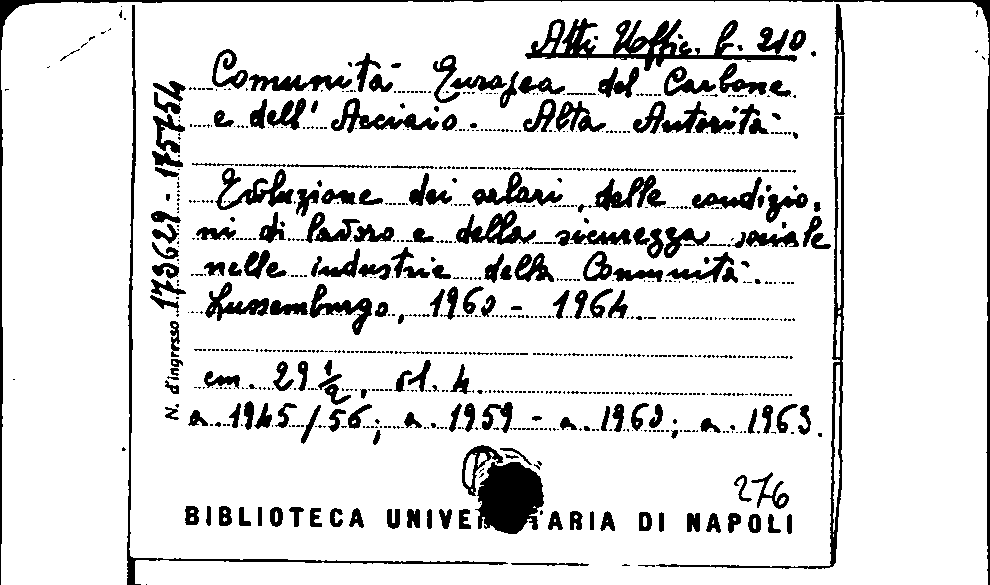 Atti Uffic. b. 210.
Comunità Europea del Carbone
e dell' Acciaio. Alta Autorità.
Evoluzione dei salari, delle condizio-
ni di lavoro e della sicurezza sociale
nelle industrie della Comunità.
Lussemburgo, 1960 - 1964.
cm. 29 1/2, vl. 4.
a. 1945/56; a. 1959 - a. 1960; a. 1963.
N. d'ingresso 173629 - 175754
276
BIBLIOTECA UNIVE TARIA DI NAPOLI